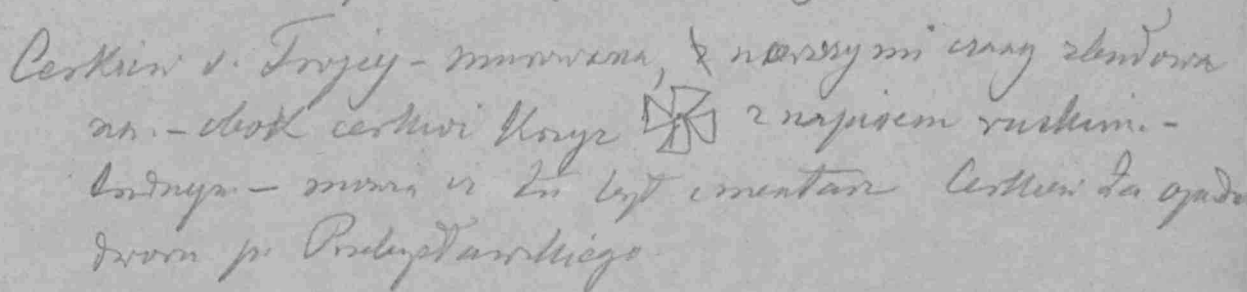 Cerkiew s. Trojcy – murowana, z nowszymi czasy zbudowa
na. – obok cerkwi krzyz z napisem ruskim. –
– mowia iz tu był cmentarz Cerkiew ta
dworu p. Przebysławskiego